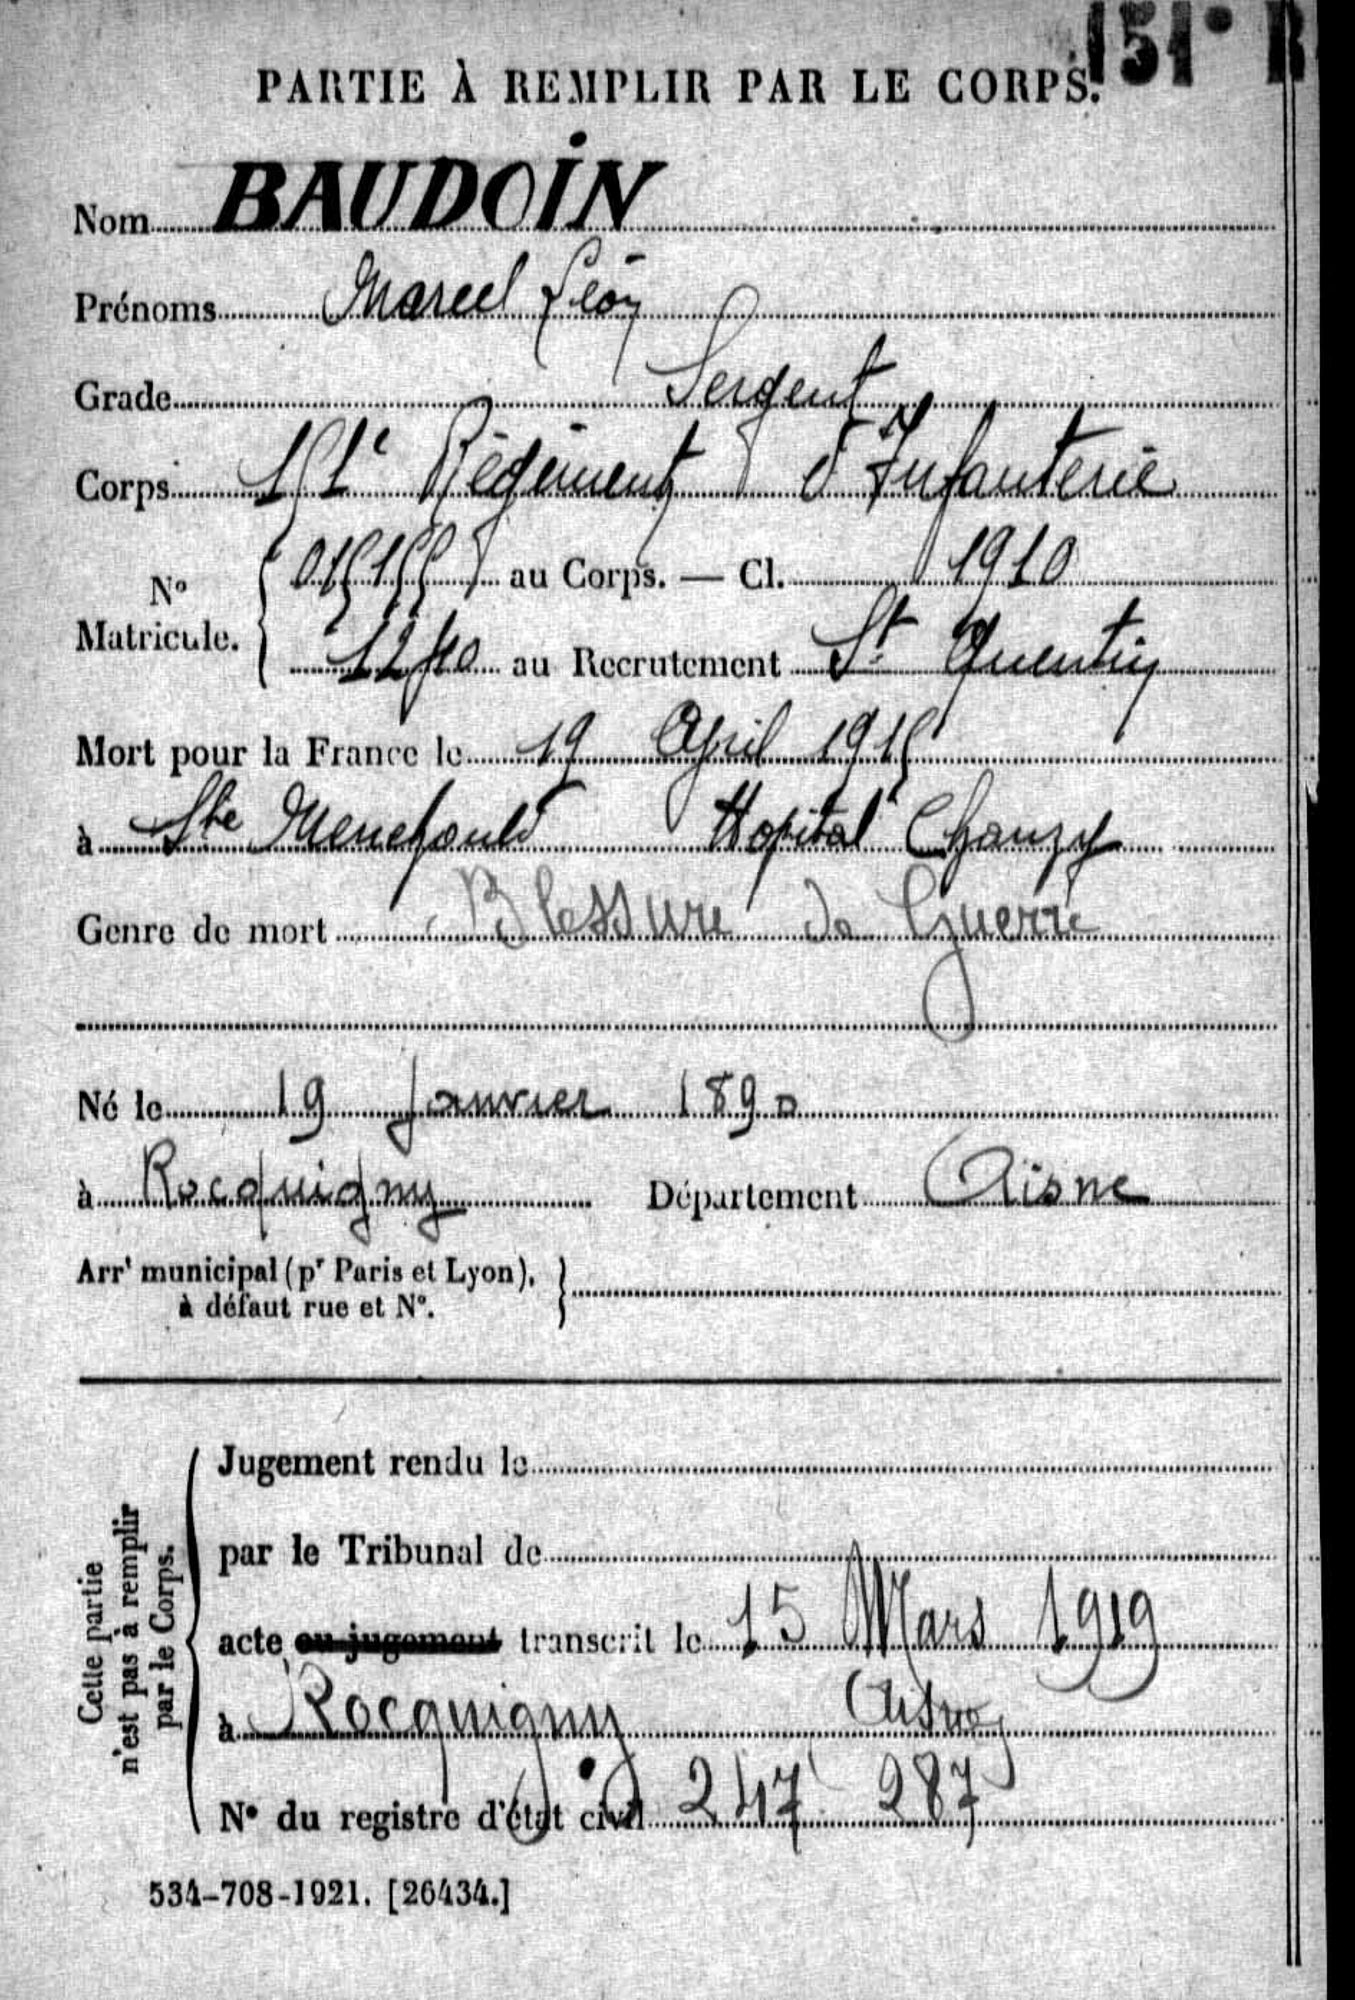 151e R
PARTIE À REMPLIR PAR LE CORPS.
Nom BAUDOIN
Prénoms Marcel Léon
Grade Sergent
Corps 151e Régiment d'Infanterie
No Matricule. { 015155 au Corps. — Cl. 1910
1240 au Recrutement St Quentin
Mort pour la France le 19 April 1915
à Ste Menehould Hopital Chanzy
Genre de mort Blessure de Guerre
Né le 19 Janvier 1890
à Rocquigny Département Aisne
Arrt municipal (pr Paris et Lyon), }
à défaut rue et No.
Cette partie n'est pas à remplir par le Corps.
Jugement rendu le
par le Tribunal de
acte ou jugement transcrit le 15 Mars 1919
à Rocquigny Aisne
No du registre d'état civil 247 287
534-708-1921. [26434.]